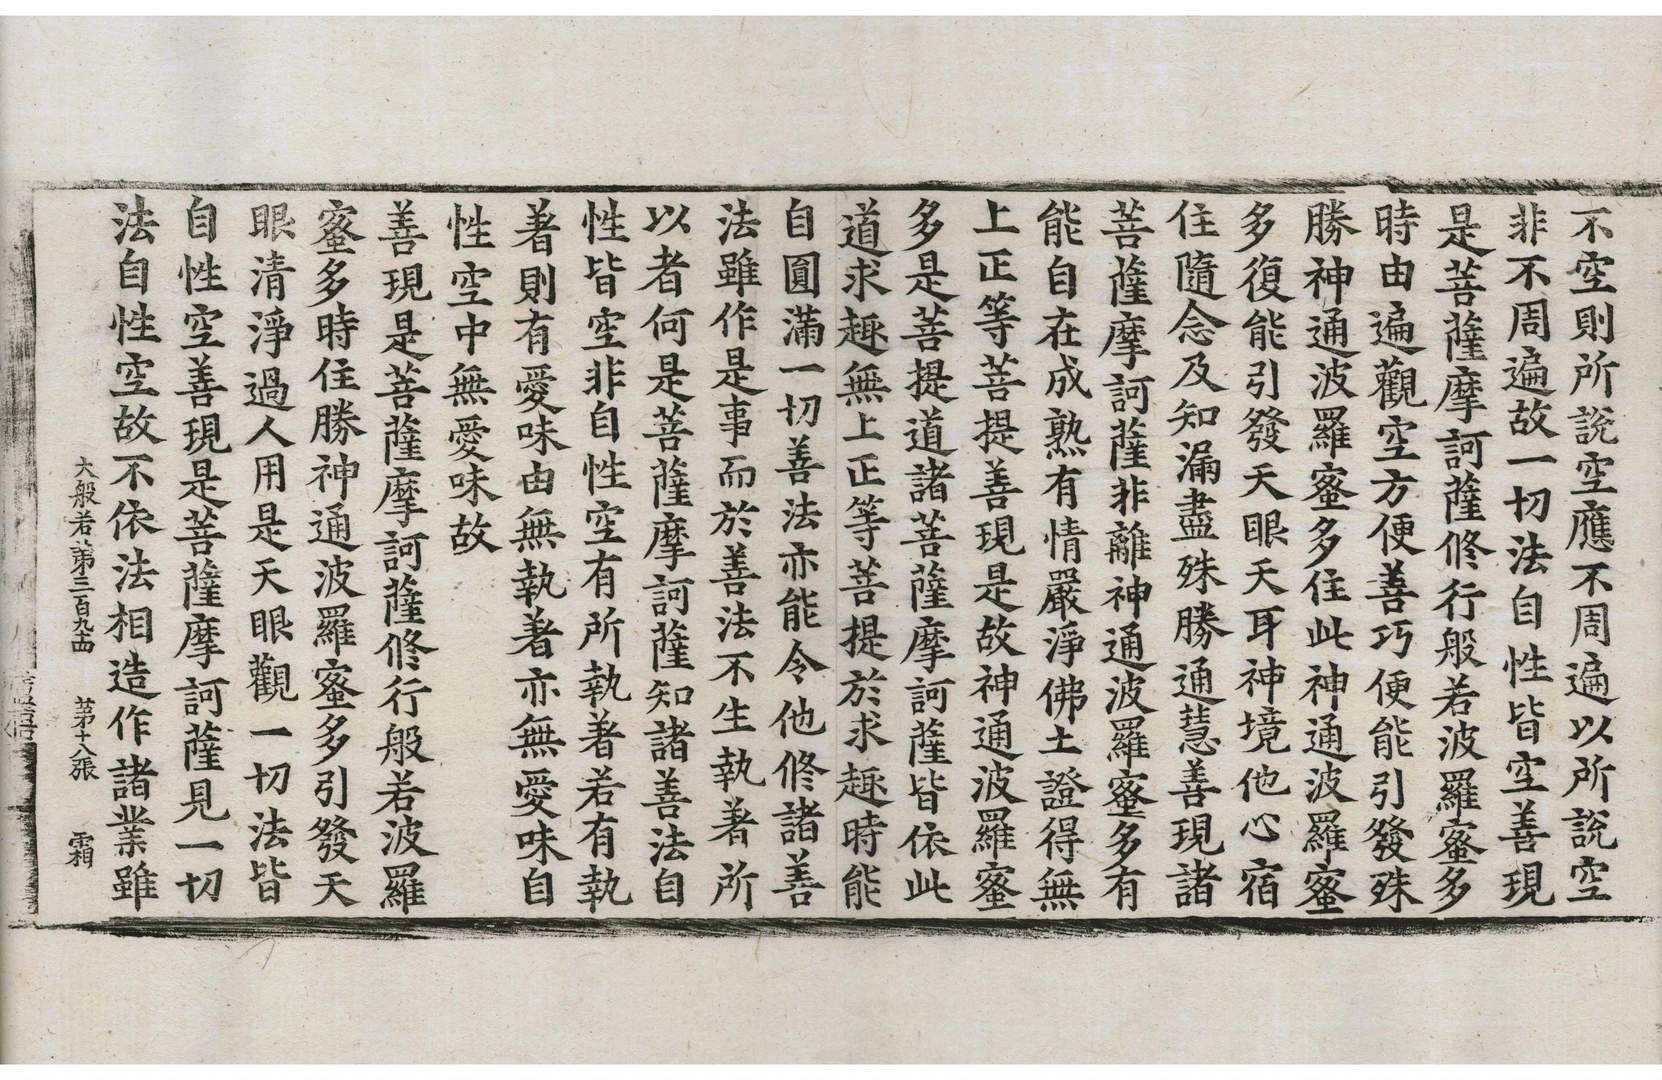 不空則所說空應不周遍以所說空
非不周遍故一切法自性皆空善現
是菩薩摩訶薩修行般若波羅蜜多
時由遍觀空方便善巧便能引發殊
勝神通波羅蜜多住此神通波羅蜜
多復能引發天眼天耳神境他心宿
住隨念及知漏盡殊勝通慧善現諸
菩薩摩訶薩非離神通波羅蜜多有
能自在成熟有情嚴淨佛土證得無
上正等菩提善現是故神通波羅蜜
多是菩提道諸菩薩摩訶薩皆依此
道求趣無上正等菩提於求趣時能
自圓滿一切善法亦能令他修諸善
法雖作是事而於善法不生執著所
以者何是菩薩摩訶薩知諸善法自
性皆空非自性空有所執著若有執
著則有愛味由無執著亦無愛味自
性空中無愛味故
善現是菩薩摩訶薩修行般若波羅
蜜多時住勝神通波羅蜜多引發天
眼清淨過人用是天眼觀一切法皆
自性空善現是菩薩摩訶薩見一切
法自性空故不依法相造作諸業雖
大般若第三百九十四 第十八張 霜